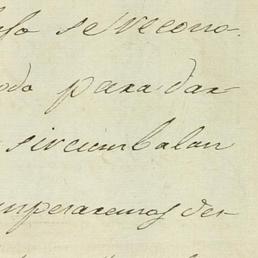 se vecono
odo para dar
sircumbalan
mperaremos des-